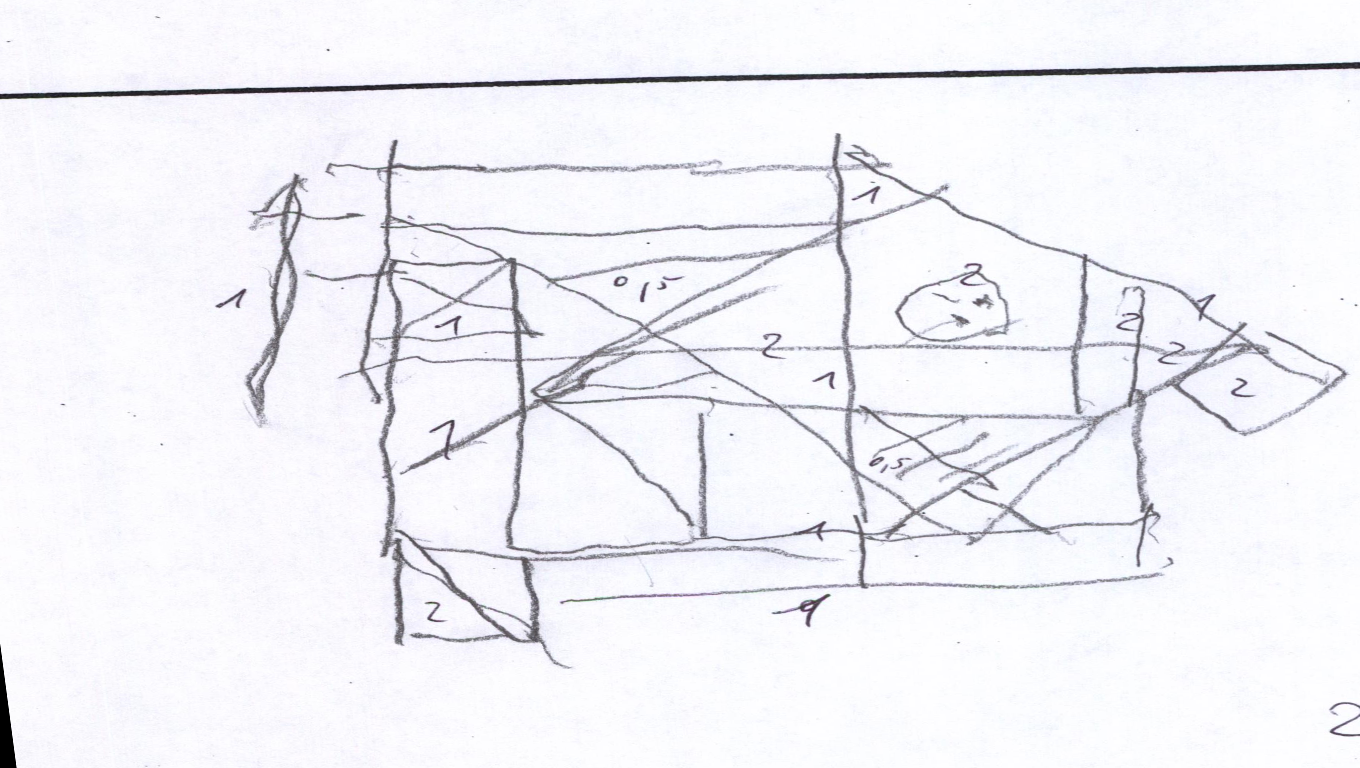 1
2
1
0,5
2
1
1
2
2
2
1
1
0,5
1
2
2